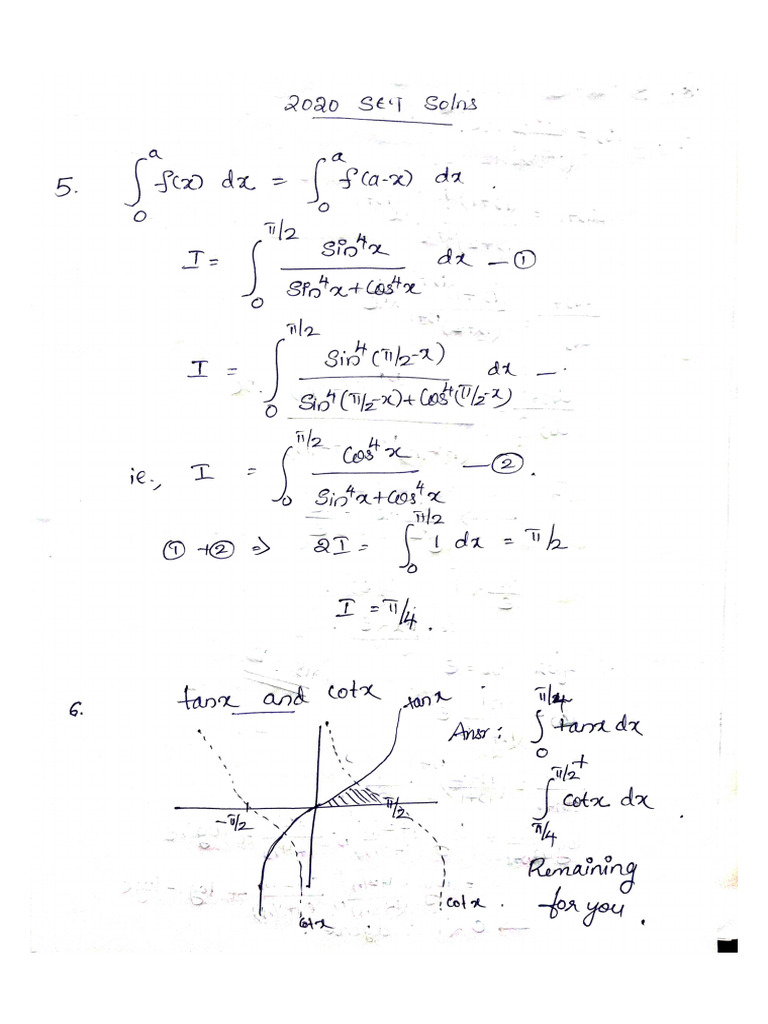 2020 SET Solns
5. ∫₀ᵃ f(x) dx = ∫₀ᵃ f(a-x) dx .
I = ∫₀^(π/2) Sin⁴x / (Sin⁴x + Cos⁴x) dx — ①
I = ∫₀^(π/2) Sin⁴(π/2-x) / (Sin⁴(π/2-x) + Cos⁴(π/2-x)) dx —.
ie., I = ∫₀^(π/2) Cos⁴x / (Sin⁴x + Cos⁴x) — ②.
① + ② ⇒ 2I = ∫₀^(π/2) 1 dx = π/2
I = π/4 .
6. tanx and cotx
tanx
Ansr : ∫₀^(π/4) tanx dx
+
∫_(π/4)^(π/2) cotx dx .
-π/2
π/2
Remaining
for you .
cotx .
cotx